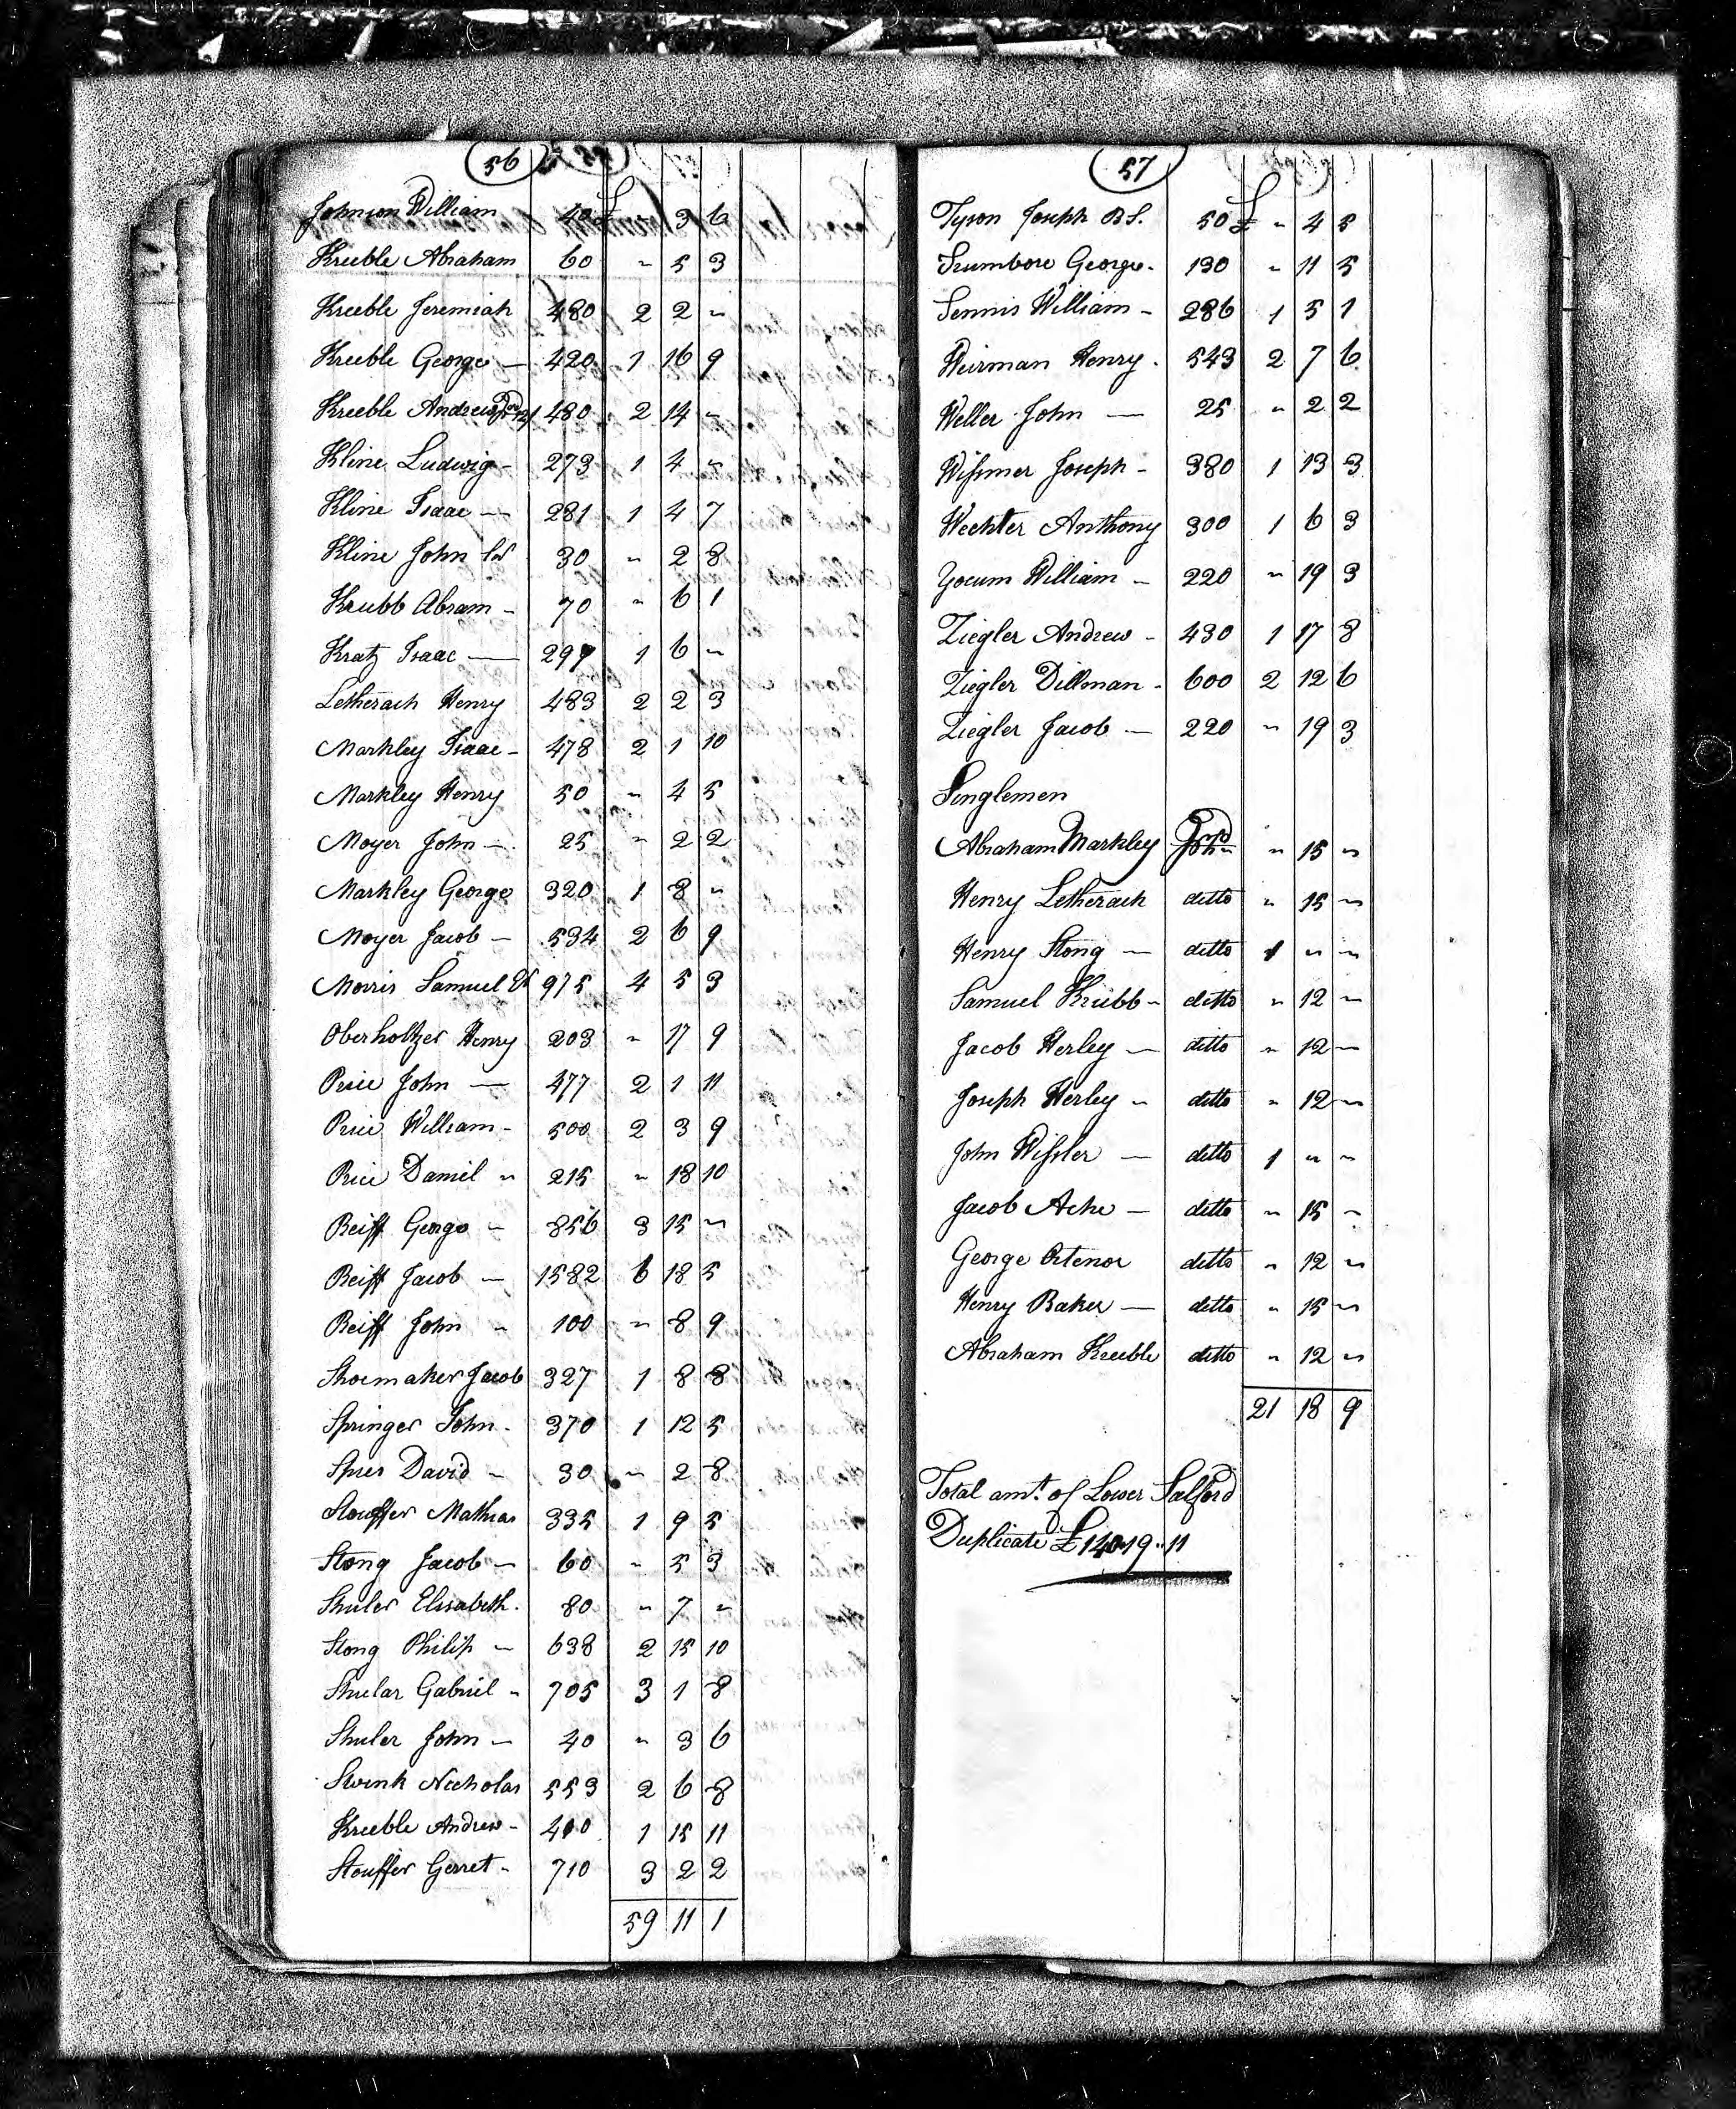 56
Johnson William 40 £ " 3 6
Kreeble Abraham 60 " 5 3
Kreeble Jeremiah 480 2 2 "
Kreeble George — 420 1 16 9
Kreeble Andrew 480 2 14 "
Kline Ludwig - 273 1 4 "
Kline Isaac — 281 1 4 7
Kline John 30 " 2 8
Krubb Abram - 70 " 6 1
Kratz Isaac — 297 1 6 "
Letherach Henry 483 2 2 3
Markley Isaac - 478 2 1 10
Markley Henry 50 " 4 5
Moyer John — 25 " 2 2
Markley George 320 1 8 "
Moyer Jacob — 534 2 6 9
Morris Samuel 975 4 5 3
Oberholtzer Henry 203 " 17 9
Price John — 477 2 1 11
Price William - 500 2 3 9
Price Daniel " 215 " 18 10
Reiff George - 856 3 15 "
Reiff Jacob — 1582 6 18 5
Reiff John - 100 " 8 9
Shoemaker Jacob 327 1 8 8
Springer John - 370 1 12 5
Spies David - 30 " 2 8
Stouffer Mathias 335 1 9 5
Stong Jacob — 60 " 5 3
Shuler Elisabeth. 80 " 7 "
Stong Philip — 638 2 15 10
Shular Gabriel " 705 3 1 8
Shuler John — 40 " 3 6
Swink Nicholas 553 2 6 8
Kreeble Andrew - 410 1 15 11
Stouffer Gerret - 710 3 2 2
59 11 1
57
Tyson Joseph B S. 50 £ " 4 5
Trumbore George - 130 " 11 5
Tennis William - 286 1 5 1
Weirman Henry . 543 2 7 6
Weller John — 25 " 2 2
Wissmer Joseph - 380 1 13 3
Wechter Anthony 300 1 6 3
Yocum William - 220 " 19 3
Ziegler Andrew - 430 1 17 8
Ziegler Dillman - 600 2 12 6
Ziegler Jacob — 220 " 19 3
Singlemen
Abraham Markley " 15 "
Henry Letherach ditto " 15 "
Henry Stong — ditto 1 " "
Samuel Krubb - ditto " 12 "
Jacob Herley — ditto " 12 "
Joseph Herley " ditto " 12 "
John Wissler — ditto 1 " "
Jacob Ache — ditto " 15 "
George Ortenor ditto " 12 "
Henry Baker — ditto " 15 "
Abraham Kreeble ditto " 12 "
21 18 9
Total amt. of Lower Salford
Duplicate £ 140 " 19 " 11